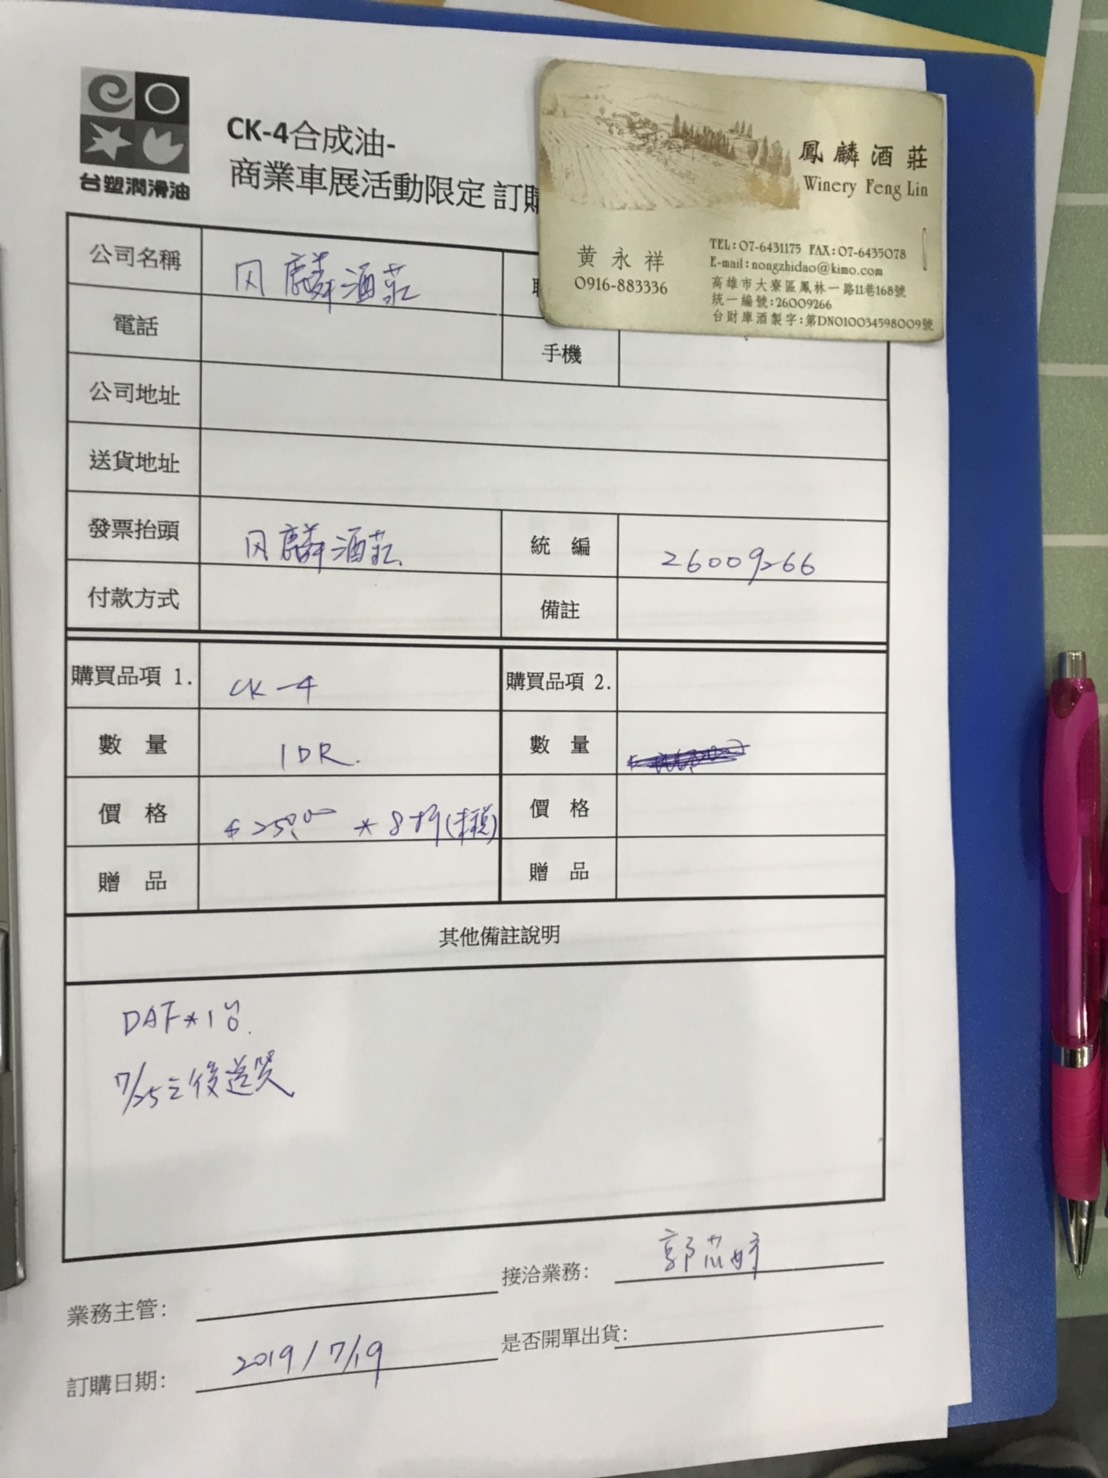 台塑潤滑油
CK-4合成油-
商業車展活動限定 訂購
鳳麟酒莊
Winery Feng Lin
黃永祥
0916-883336
TEL:07-6431175 FAX:07-6435078
E-mail:nongzhidao@kimo.com
高雄市大寮區鳳林一路11巷168號
統一編號:26009266
台財庫酒製字:第DN010034598009號
公司名稱 麟酒莊
電話
手機
公司地址
送貨地址
發票抬頭 麟酒莊 統編 26009266
付款方式 備註
購買品項 1. CK-4 購買品項 2.
數量 1DR. 數量
價格 * 8折(未稅) 價格
贈品 贈品
其他備註說明
DAF*1台.
7/25之後送貨
接洽業務: 郭芯妤
業務主管:
是否開單出貨:
訂購日期: 2019/7/19